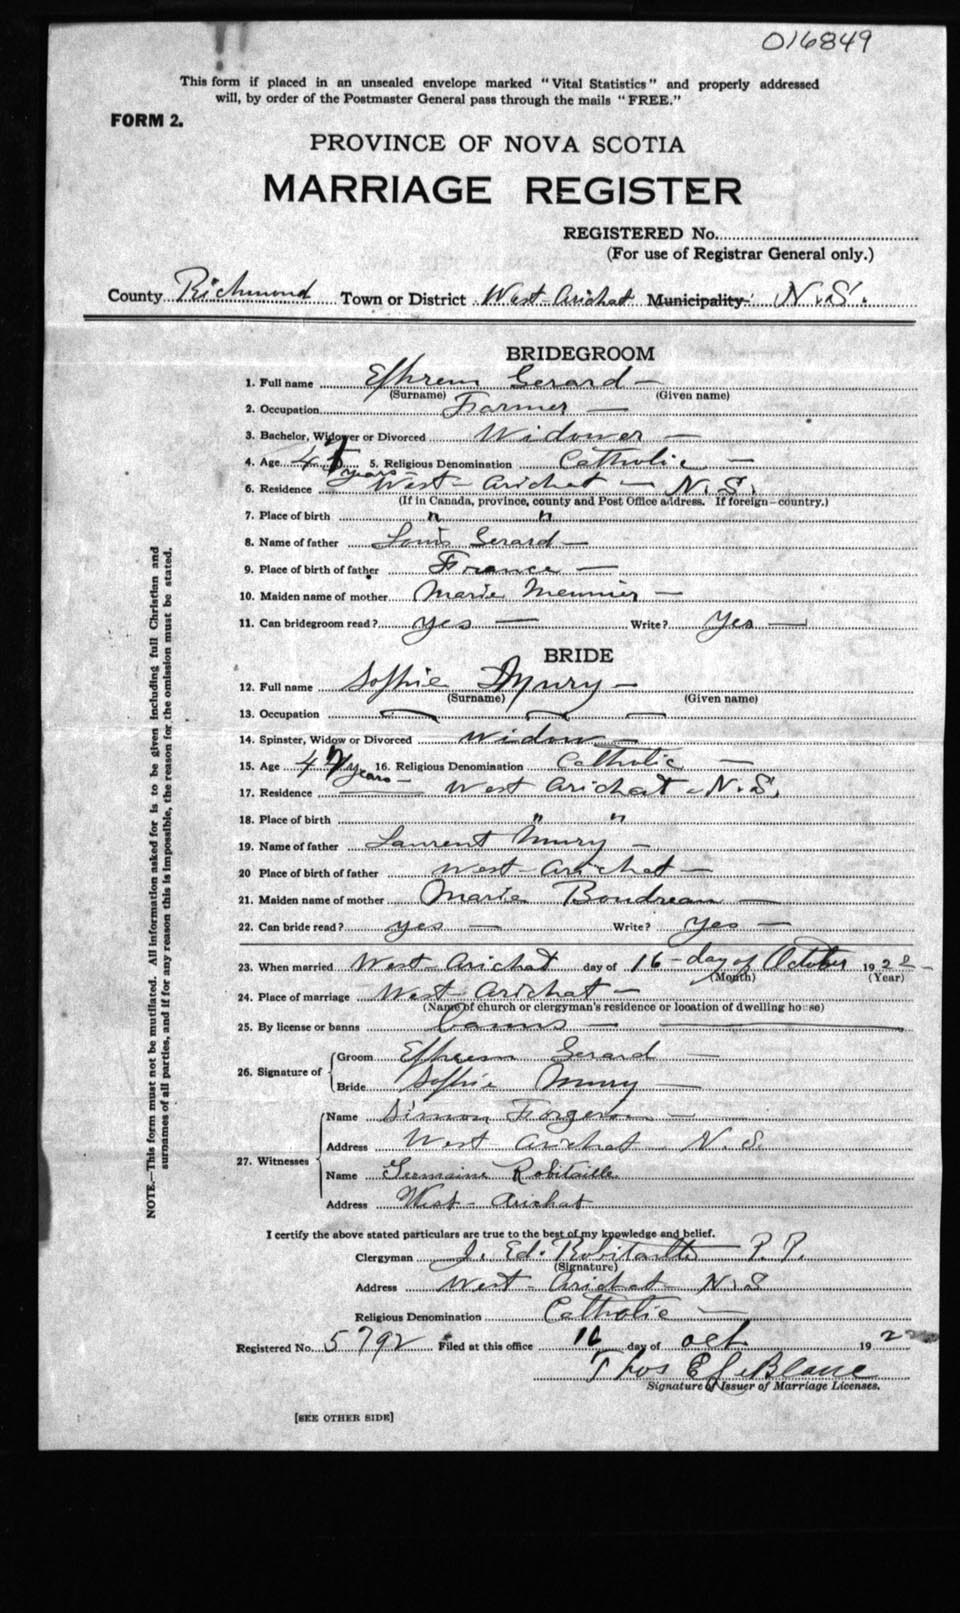 016849
This form if placed in an unsealed envelope marked "Vital Statistics" and properly addressed
will, by order of the Postmaster General pass through the mails "FREE."
FORM 2.
PROVINCE OF NOVA SCOTIA
MARRIAGE REGISTER
REGISTERED No.
(For use of Registrar General only.)
County Richmond Town or District West-Arichat Municipality N.S.
BRIDEGROOM
1. Full name Ephrem Gerard
(Surname) (Given name)
2. Occupation Farmer
3. Bachelor, Widower or Divorced Widower
4. Age 47 years 5. Religious Denomination Catholic
6. Residence West-Arichat N.S.
(If in Canada, province, county and Post Office address. If foreign-country.)
7. Place of birth " "
8. Name of father Louis Gerard
9. Place of birth of father France
10. Maiden name of mother Marie Meunier
11. Can bridegroom read? yes Write? Yes
BRIDE
12. Full name Sophie Mury
(Surname) (Given name)
13. Occupation
14. Spinster, Widow or Divorced Widow
15. Age 47 years 16. Religious Denomination Catholic
17. Residence West Arichat N.S.
18. Place of birth " "
19. Name of father Laurent Mury
20 Place of birth of father West-Arichat
21. Maiden name of mother Marie Boudreau
22. Can bride read? yes Write? Yes
23. When married West-Arichat day of 16-day of October 1922
(Month) (Year)
24. Place of marriage West Arichat
(Name of church or clergyman's residence or location of dwelling house)
25. By license or banns banns
26. Signature of Groom Ephrem Gerard
Bride Sophie Mury
27. Witnesses Name Simon Forgeron
Address West Arichat N.S.
Name Germaine Robitaille
Address West-Arichat
I certify the above stated particulars are true to the best of my knowledge and belief.
Clergyman J. Ed. Robitaille P.P.
(Signature)
Address West-Arichat N.S
Religious Denomination Catholic
Registered No. 5792 Filed at this office 16 day of oct 1922
Thos E LeBlanc
Signature of Issuer of Marriage Licenses.
[SEE OTHER SIDE]
NOTE.—This form must not be mutilated. All information asked for is to be given including full Christian and
surnames of all parties, and if for any reason this is impossible, the reason for the omission must be stated.